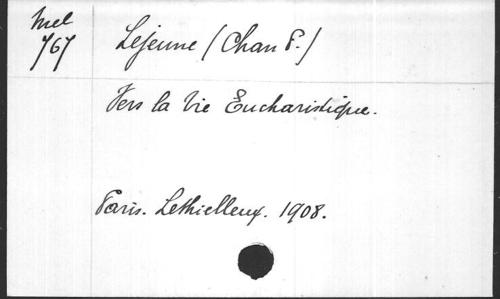 Mel
767
Lejeune (Chan P.)
Vers la Vie Eucharistique.
Paris. Lethielleux. 1908.